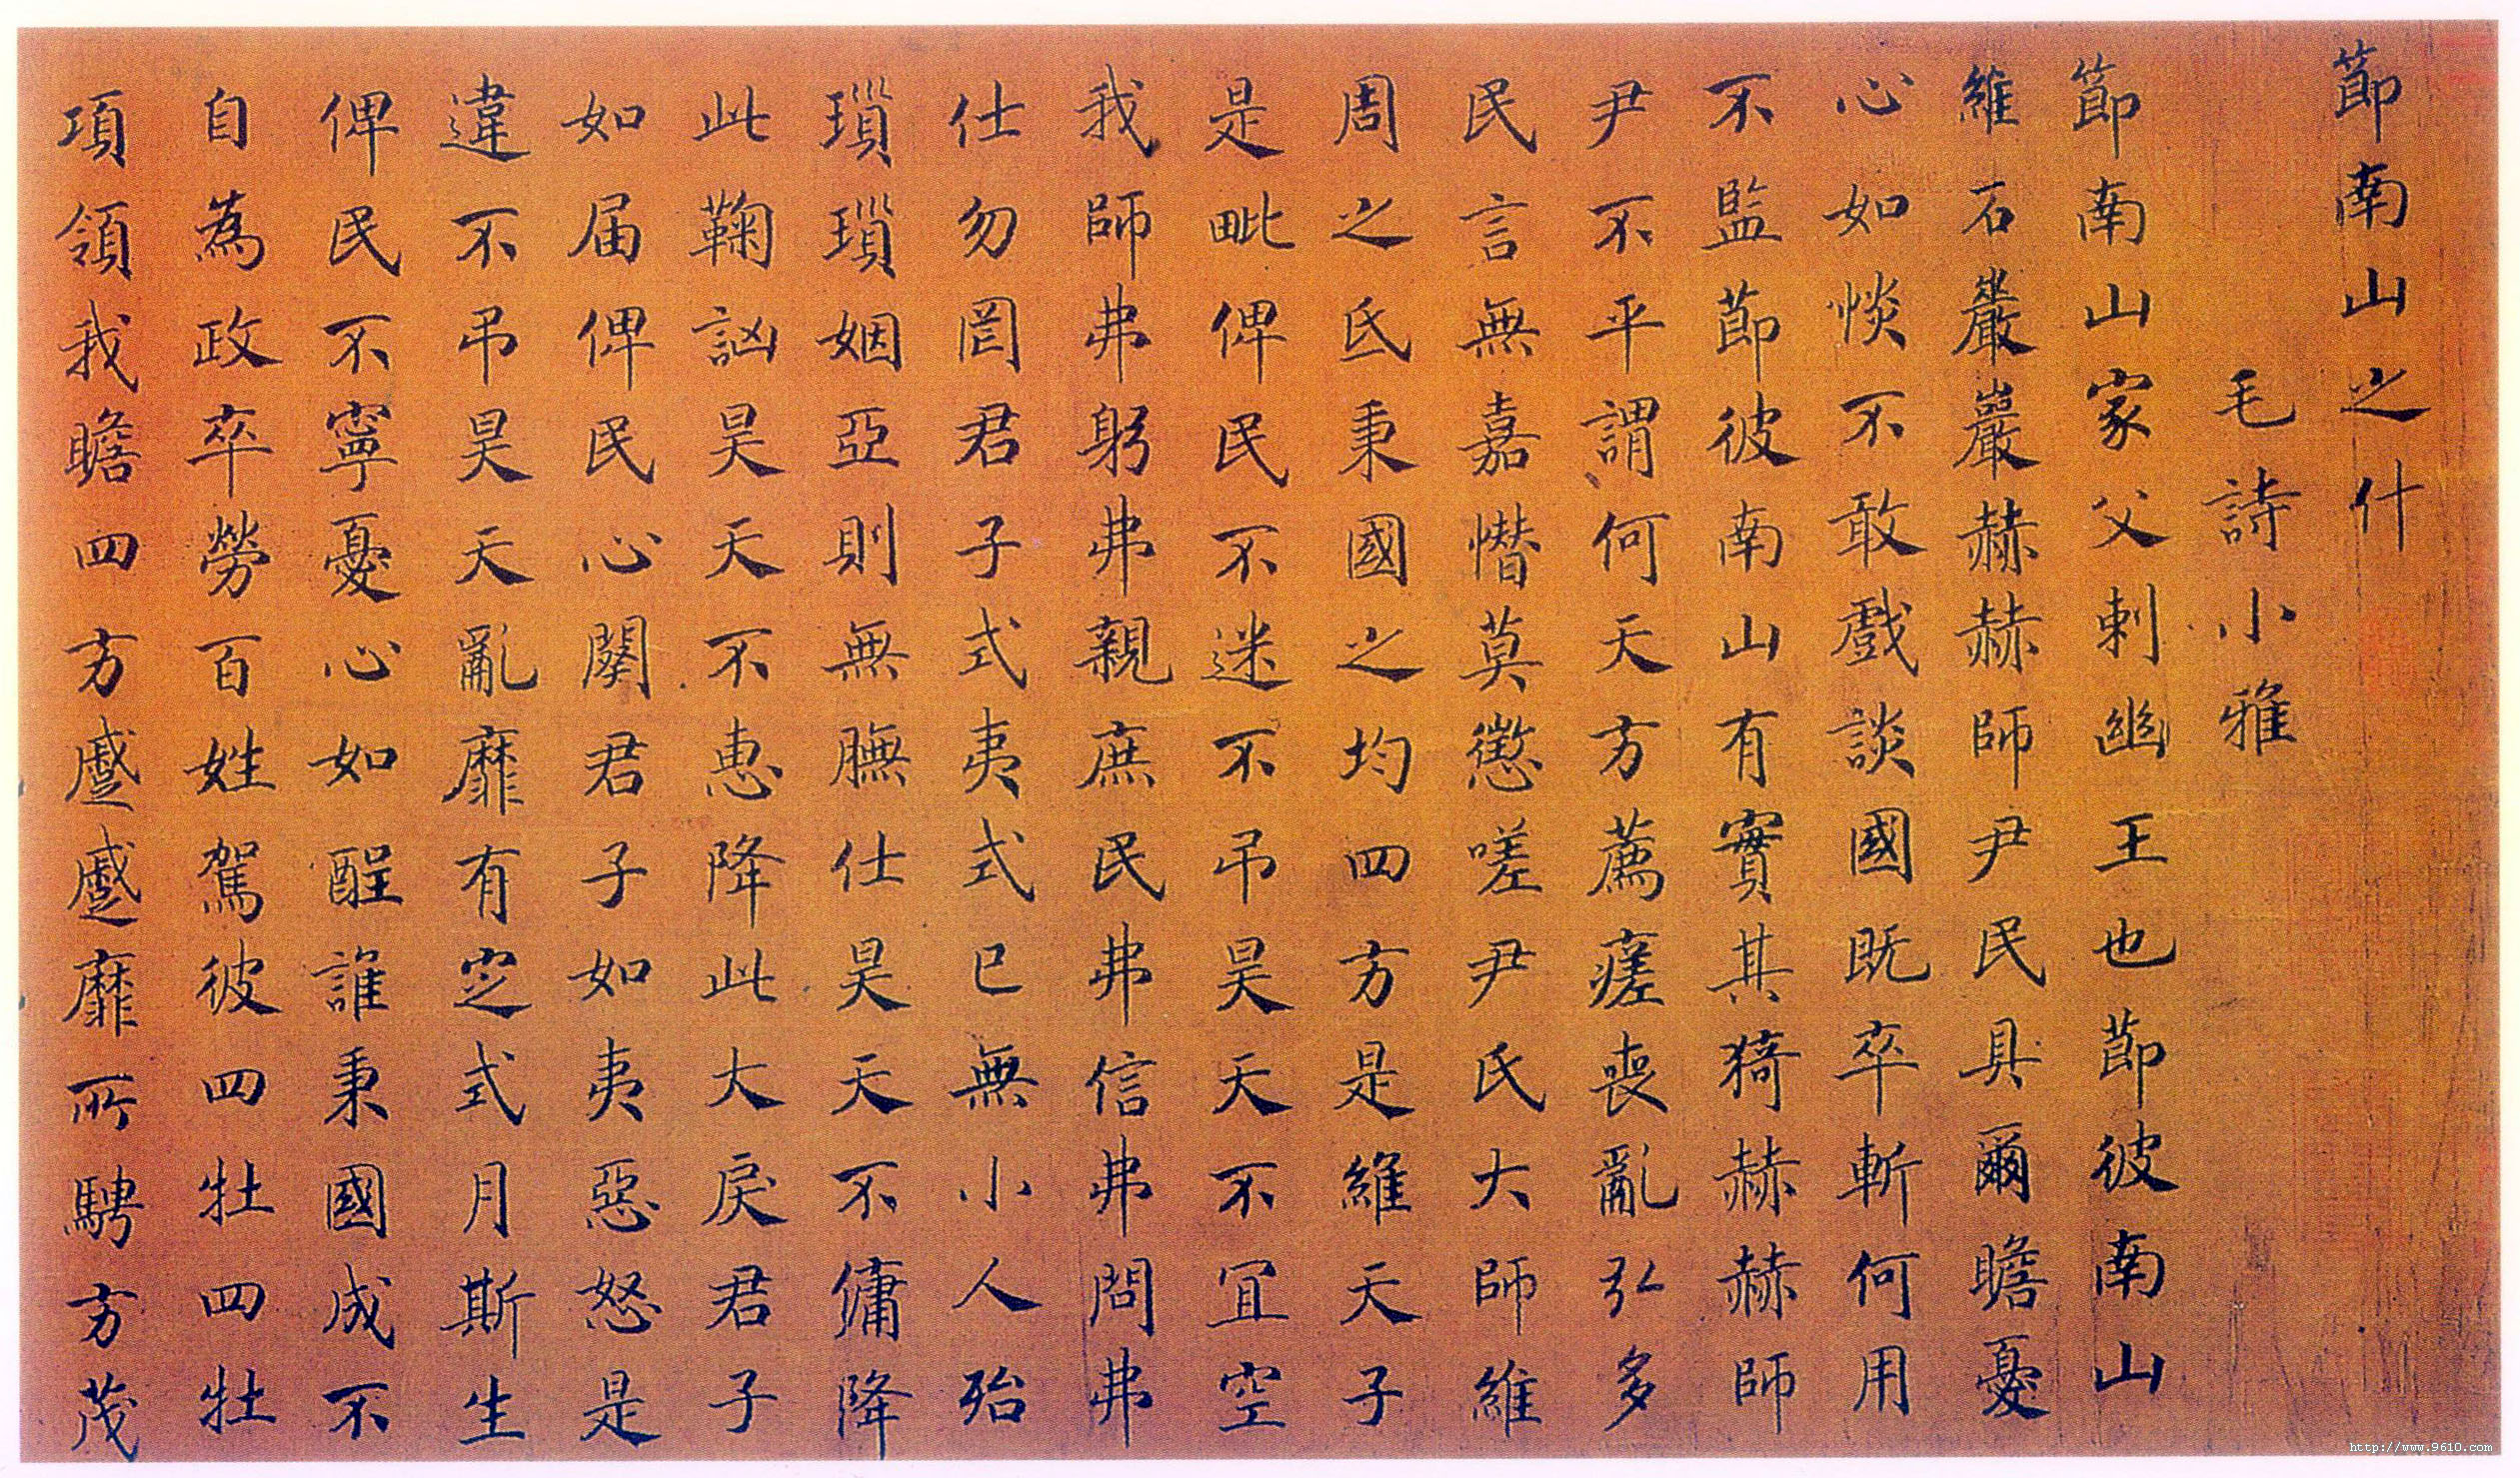 節南山之什
毛詩小雅
節南山家父刺幽王也節彼南山
維石巖巖赫赫師尹民具爾瞻憂
心如惔不敢戲談國既卒斬何用
不監節彼南山有實其猗赫赫師
尹不平謂何天方薦瘥喪亂弘多
民言無嘉憯莫懲嗟尹氏大師維
周之氐秉國之均四方是維天子
是毗俾民不迷不弔昊天不宜空
我師弗躬弗親庶民弗信弗問弗
仕勿罔君子式夷式已無小人殆
瑣瑣姻亞則無膴仕昊天不傭降
此鞠訩昊天不惠降此大戾君子
如届俾民心闋君子如夷惡怒是
違不弔昊天亂靡有定式月斯生
俾民不寧憂心如酲誰秉國成不
自為政卒勞百姓駕彼四牡四牡
項領我瞻四方蹙蹙靡所騁方茂
http://www.9610.com